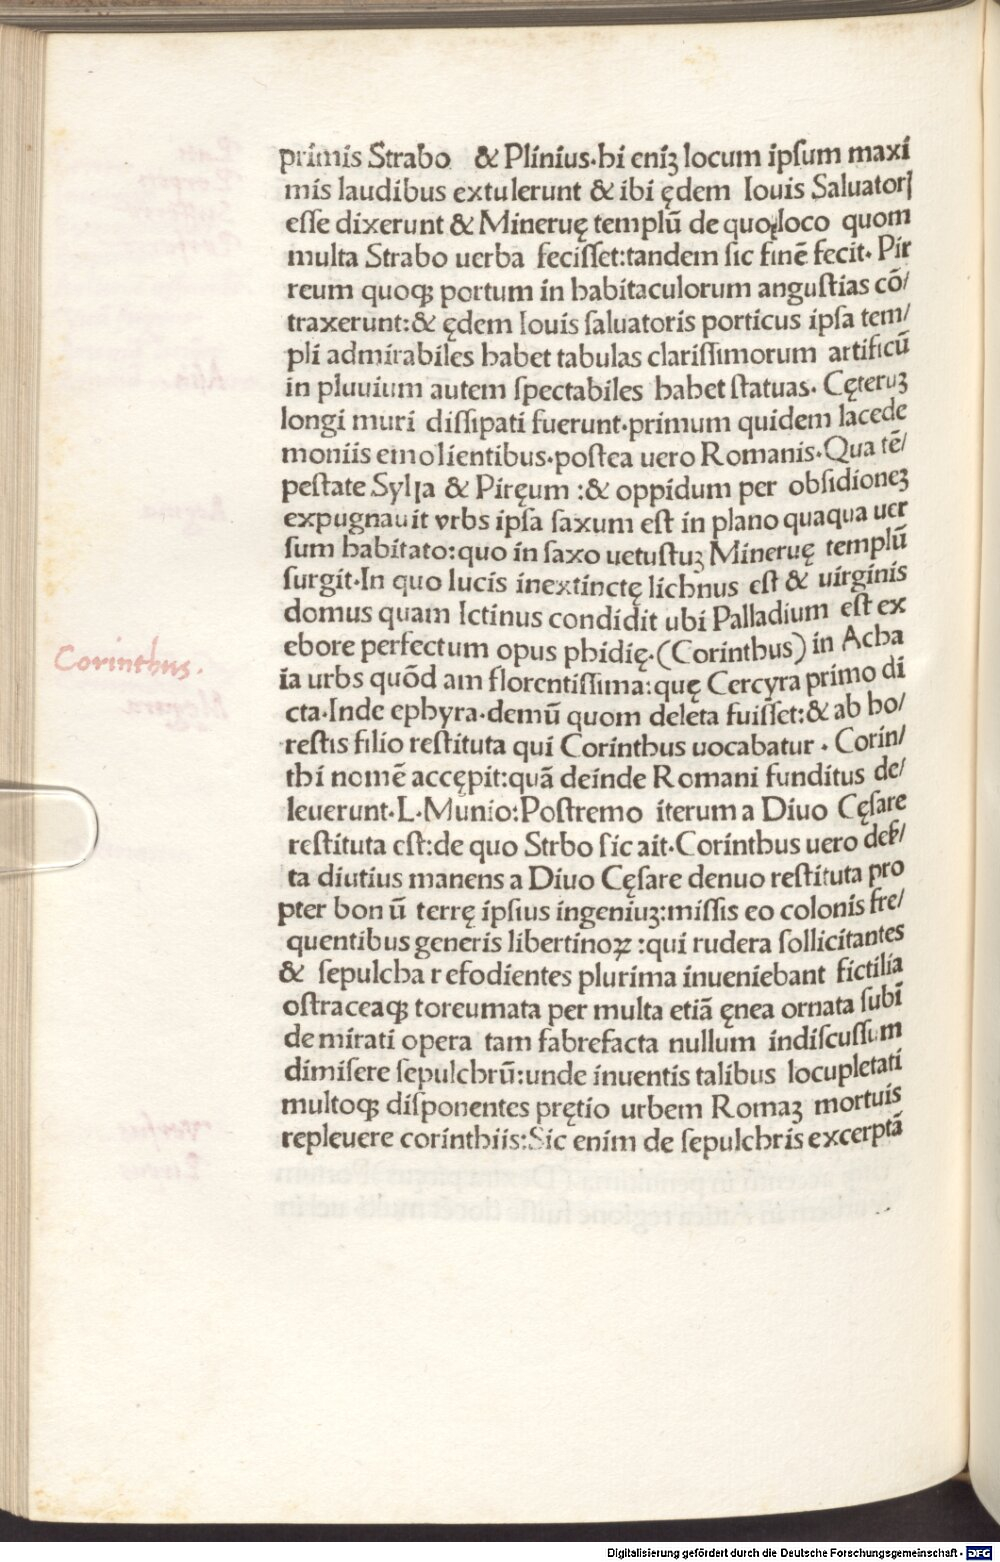 primis Strabo & Plinius·hi eniꝫ locum ipſum maxi
mis laudibus extulerunt & ibi ędem Iouis Saluatorſ
eſſe dixerunt & Mineruę templū de quo loco quom
multa Strabo uerba feciſſet:tandem ſic finē fecit· Pir
reum quoqꝫ portum in habitaculorum anguſtias cō/
traxerunt:& ędem Iouis ſaluatoris porticus ipſa tem/
pli admirabiles habet tabulas clariſſimorum artificū
in pluuium autem ſpectabiles habet ſtatuas· Cęteruꝫ
longi muri diſſipati fuerunt·primum quidem lacede
moniis emolientibus·poſtea uero Romanis·Qua tē/
peſtate Sylla & Piręum :& oppidum per obſidioneꝫ
expugnauit vrbs ipſa ſaxum eſt in plano quaqua uer
ſum habitato:quo in ſaxo uetuſtuꝫ Mineruę templū
ſurgit·In quo lucis inextinctę lichnus eſt & uirginis
domus quam Ictinus condidit ubi Palladium eſt ex
ebore perfectum opus phidię·(Corinthus) in Acha
Corinthus.
ia urbs quōd am florentiſſima:quę Cercyra primo di
cta·Inde ephyra·demū quom deleta fuiſſet:& ab ho/
reſtis filio reſtituta qui Corinthus uocabatur · Corin/
thi nomē accępit:quā deinde Romani funditus de/
leuerunt·L·Munio:Poſtremo iterum a Diuo Cęſare
reſtituta eſt:de quo Strbo ſic ait·Corinthus uero deſ/
ta diutius manens a Diuo Cęſare denuo reſtituta pro
pter bon ū terrę ipſius ingeniuꝫ:miſſis eo colonis fre/
quentibus generis libertinoꝝ :qui rudera ſollicitantes
& ſepulcha r efodientes plurima inueniebant fictilia
oſtraceaqꝫ toreumata per multa etiā ęnea ornata ſubī
de mirati opera tam fabrefacta nullum indiſcuſſum
dimiſere ſepulchrū:unde inuentis talibus locupletati
multoqꝫ diſponentes prętio urbem Romaꝫ mortuis
repleuere corinthiis:Sic enim de ſepulchris excerptā
Digitalisierung gefördert durch die Deutsche Forschungsgemeinschaft - DFG